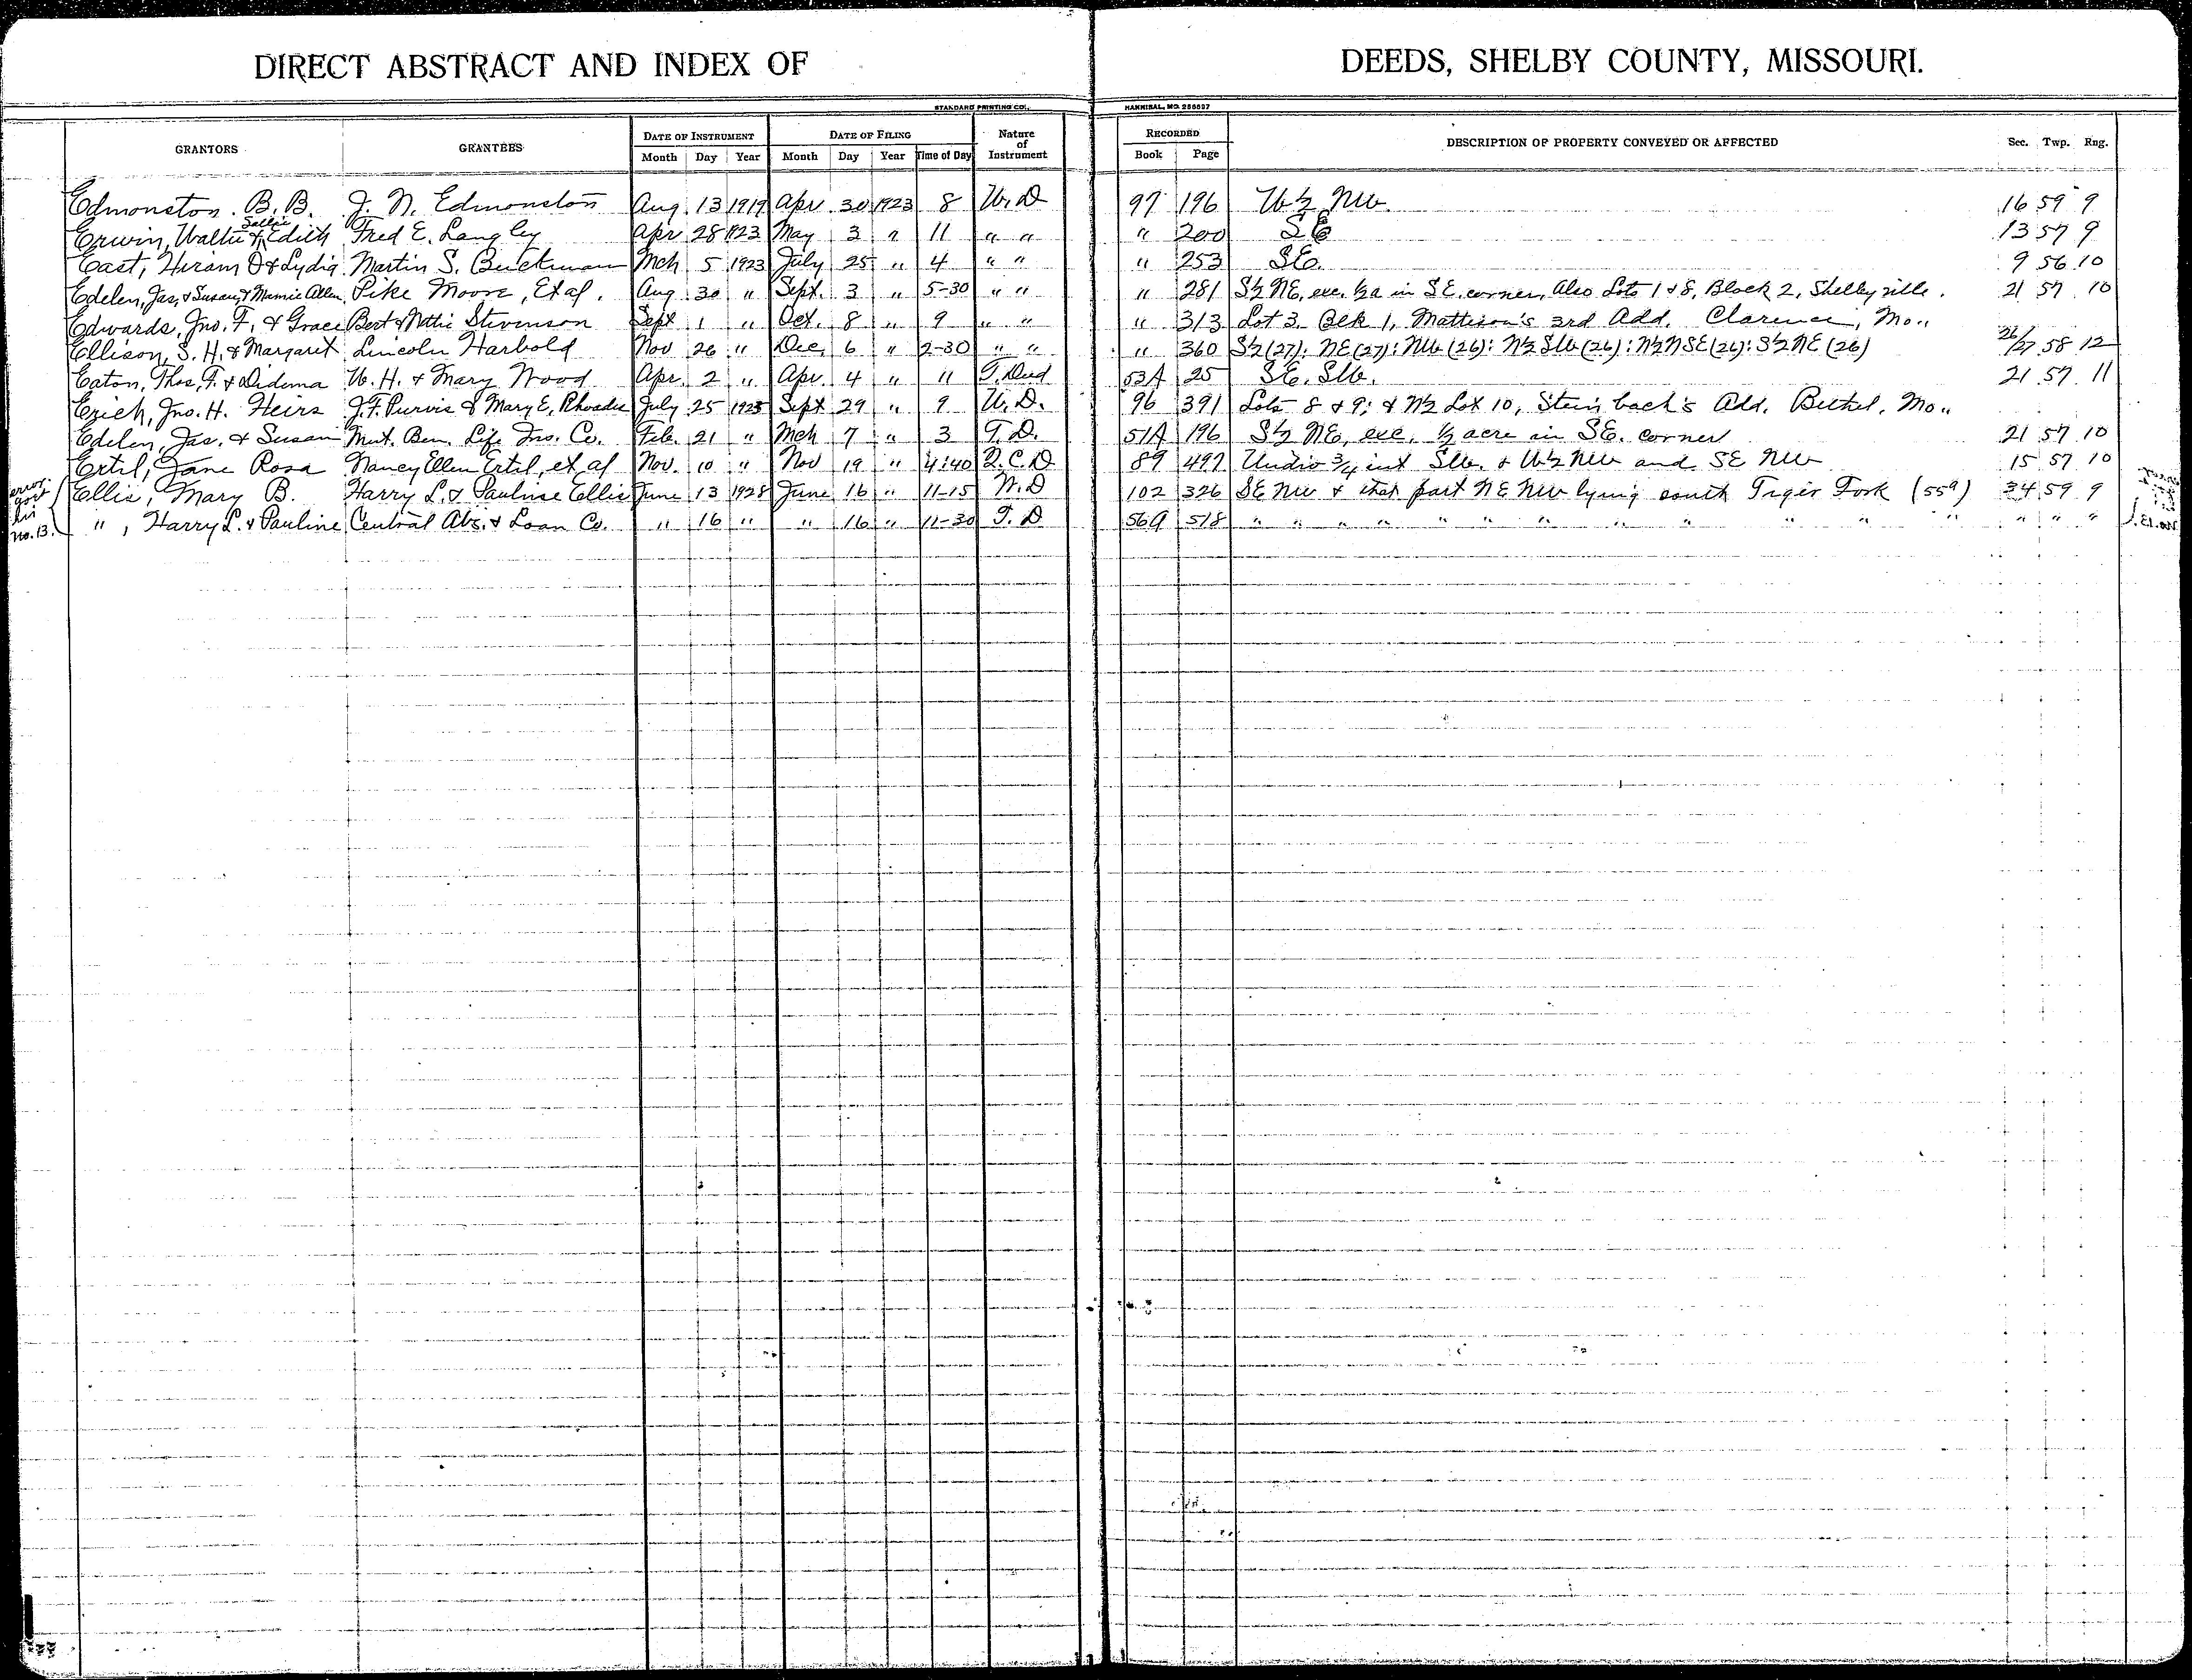 DIRECT ABSTRACT AND INDEX OF DEEDS, SHELBY COUNTY, MISSOURI.
STANDARD PRINTING CO., HANNIBAL, MO. 256627
GRANTORS GRANTEES DATE OF INSTRUMENT DATE OF FILING Nature of Instrument RECORDED DESCRIPTION OF PROPERTY CONVEYED OR AFFECTED Sec. Twp. Rng.
Month Day Year Month Day Year Time of Day Book Page
Edmonston. B. B. J. N. Edmonston Aug 13 1919 Apr 30 1923 8 W. D 97 196 W½ NW. 16 59 9
Erwin, Walter Sallie & Edith Fred E. Langley Apr 28 1923 May 3 " 11 " " " 200 SE 13 57 9
East, Hiram D & Lydia Martin S. Buckman Mch 5 1923 July 25 " 4 " " " 253 SE. 9 56 10
Edelen, Jas. & Susan, & Mamie Allen Pike Moore, Et al. Aug 30 " Sept. 3 " 5-30 " " " 281 S½ NE, exc. ½a in SE. corner, Also Lots 1 & 8, Block 2, Shelbyville. 21 57 10
Edwards, Jno. F. & Grace Bert & Nettie Stevenson Sept 1 " Oct. 8 " 9 " " " 313 Lot 3. Blk 1, Mattison's 3rd Add. Clarence, Mo..
Ellison, S. H. & Margaret Lincoln Harbold Nov 26 " Dec. 6 " 2-30 " " " 360 S½ (27): NE (27): NW (26): N½ SW (26): N½ N SE (26): S½ NE (26) 26/27 58 12
Eaton, Thos. F. & Didema W. H. & Mary Wood Apr. 2 " Apr. 4 " 11 T. Deed 53A 25 SE. SW. 21 57 11
Ezieh, Jno. H. Heirs J. F. Purvis & Mary E. Rhoades July 25 1925 Sept 29 " 9 W. D. 96 391 Lots 8 & 9: & N½ Lot 10, Steinback's Add. Bethel, Mo..
Edelen, Jas. & Susan Mut. Ben. Life Ins. Co. Feb. 21 " Mch 7 " 3 T. D. 51A 196 S½ NE, exc. ½ acre in SE. corner 21 57 10
Ertil, Jane Rosa Nancy Ellen Ertil, et al Nov. 10 " Nov 19 " 4:40 Q. C. D 89 497 Undiv ¾ int SW. & W½ NW and SE NW 15 57 10
Ellis, Mary B. Harry L. & Pauline Ellis June 13 1928 June 16 " 11-15 W. D 102 326 SE NW & that part NE NW lying south Tiger Fork (55a) 34 59 9
" , Harry L. & Pauline Central Abs. & Loan Co. " 16 " " 16 " 11-30 T. D 56A 518 " " " " " " " " " " " " " " "
error.
No. 13.